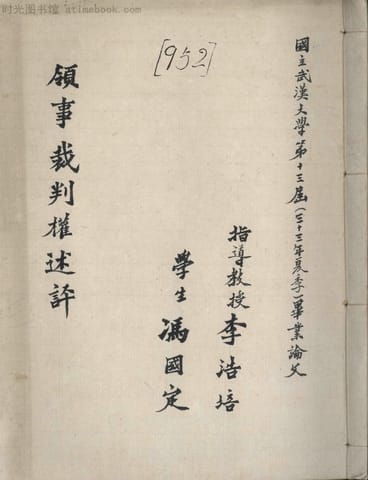 时光图书馆 - atimebook.com
[952]
國立武漢大學第十三屆(三十三年夏季)畢業論文
指導教授 李浩培
學生 馮國定
領事裁判權述評